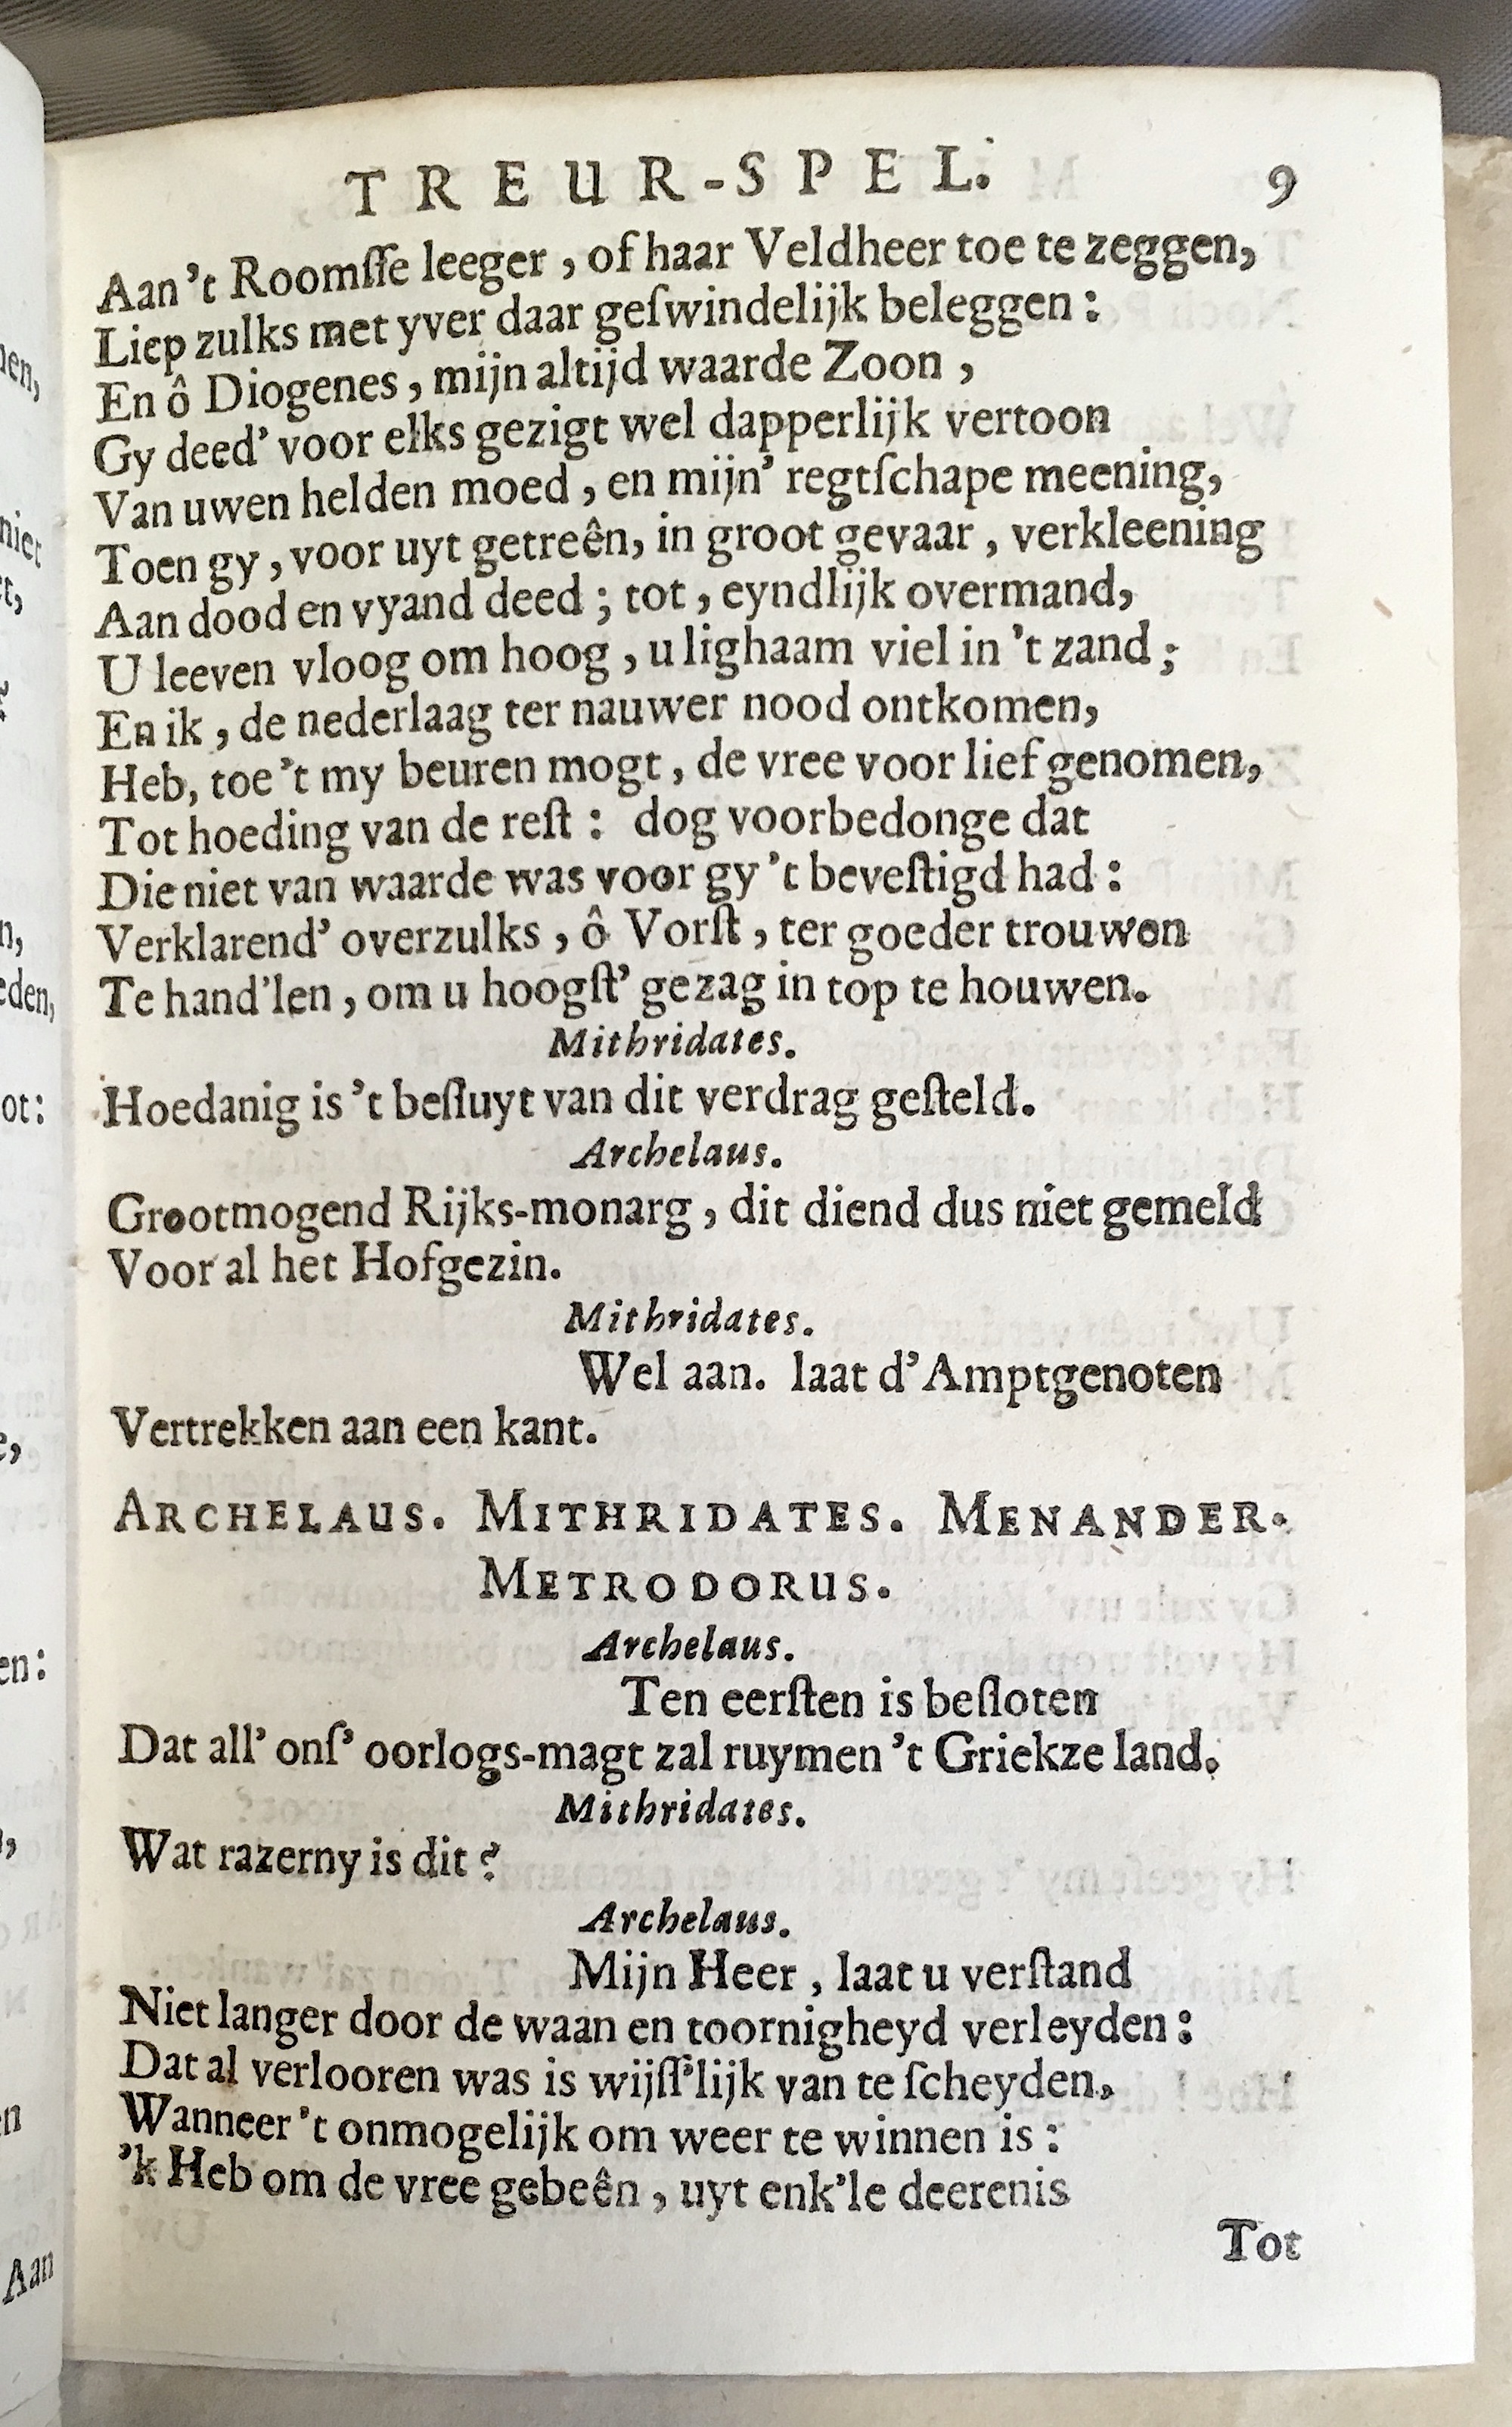 TREUR-SPEL. 9
Aan 't Roomſſe leeger, of haar Veldheer toe te zeggen,
Liep zulks met yver daar geſwindelijk beleggen:
En ô Diogenes, mijn altijd waarde Zoon,
Gy deed' voor elks gezigt wel dapperlijk vertoon
Van uwen helden moed, en mijn' regtſchape meening,
Toen gy, voor uyt getreên, in groot gevaar, verkleening
Aan dood en vyand deed; tot, eyndlijk overmand,
U leeven vloog om hoog, u lighaam viel in 't zand;
En ik, de nederlaag ter nauwer nood ontkomen,
Heb, toe 't my beuren mogt, de vree voor lief genomen,
Tot hoeding van de reſt: dog voorbedonge dat
Die niet van waarde was voor gy 't beveſtigd had:
Verklarend' overzulks, ô Vorſt, ter goeder trouwen
Te hand'len, om u hoogſt' gezag in top te houwen.
Mithridates.
Hoedanig is 't beſluyt van dit verdrag geſteld.
Archelaus.
Grootmogend Rijks-monarg, dit diend dus niet gemeld
Voor al het Hofgezin.
Mithridates.
Wel aan. laat d'Amptgenoten
Vertrekken aan een kant.
ARCHELAUS. MITHRIDATES. MENANDER.
METRODORUS.
Archelaus.
Ten eerſten is beſloten
Dat all' onſ' oorlogs-magt zal ruymen 't Griekze land.
Mithridates.
Wat razerny is dit?
Archelaus.
Mijn Heer, laat u verſtand
Niet langer door de waan en toornigheyd verleyden:
Dat al verlooren was is wijſſ'lijk van te ſcheyden,
Wanneer 't onmogelijk om weer te winnen is:
'k Heb om de vree gebeên, uyt enk'le deerenis
Tot